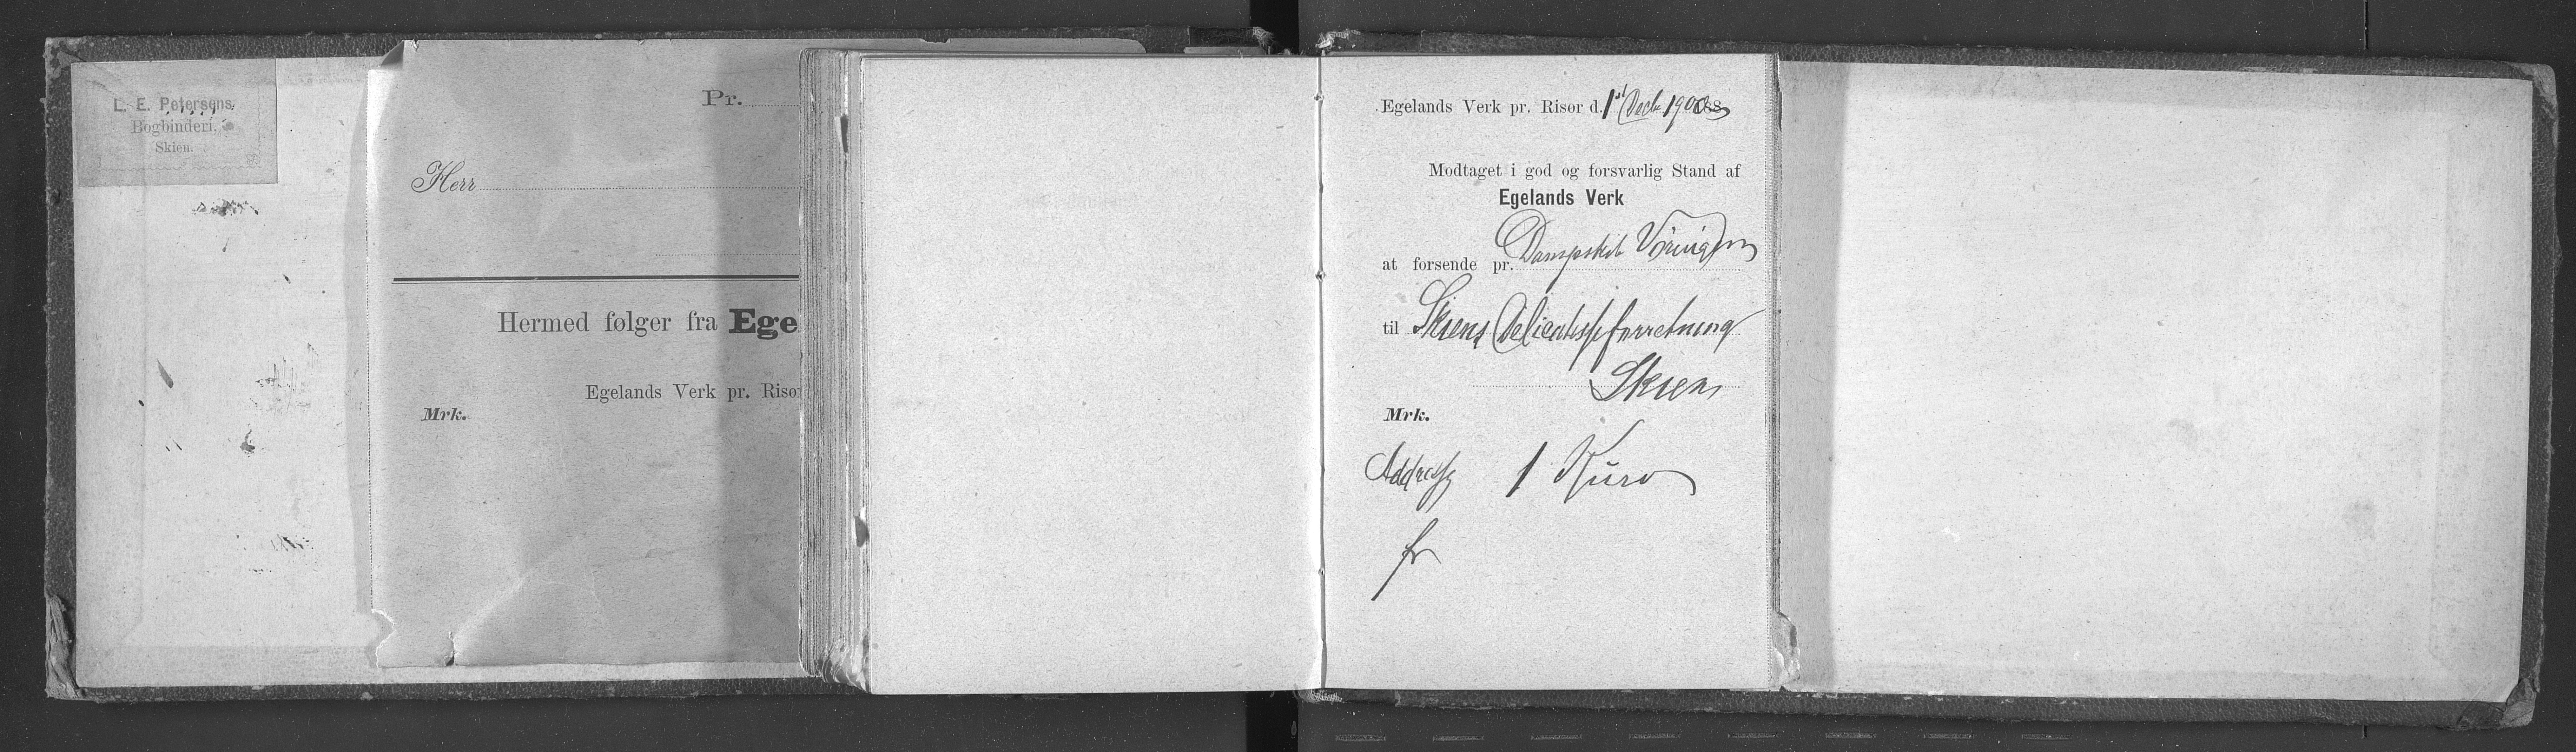 L. E. Petersens
Bogbinderi.
Skien.
Pr.
Herr
Hermed følger fra Ege
Egelands Verk pr. Risør
Mrk.
Egelands Verk pr. Risør d. 1st Decbr 1900 188
Modtaget i god og forsvarlig Stand af
Egelands Verk
at forsende pr. Dampskib
til Skiens Delicatesseforretning
Skien
Mrk.
Addresse 1 Kurv
fr